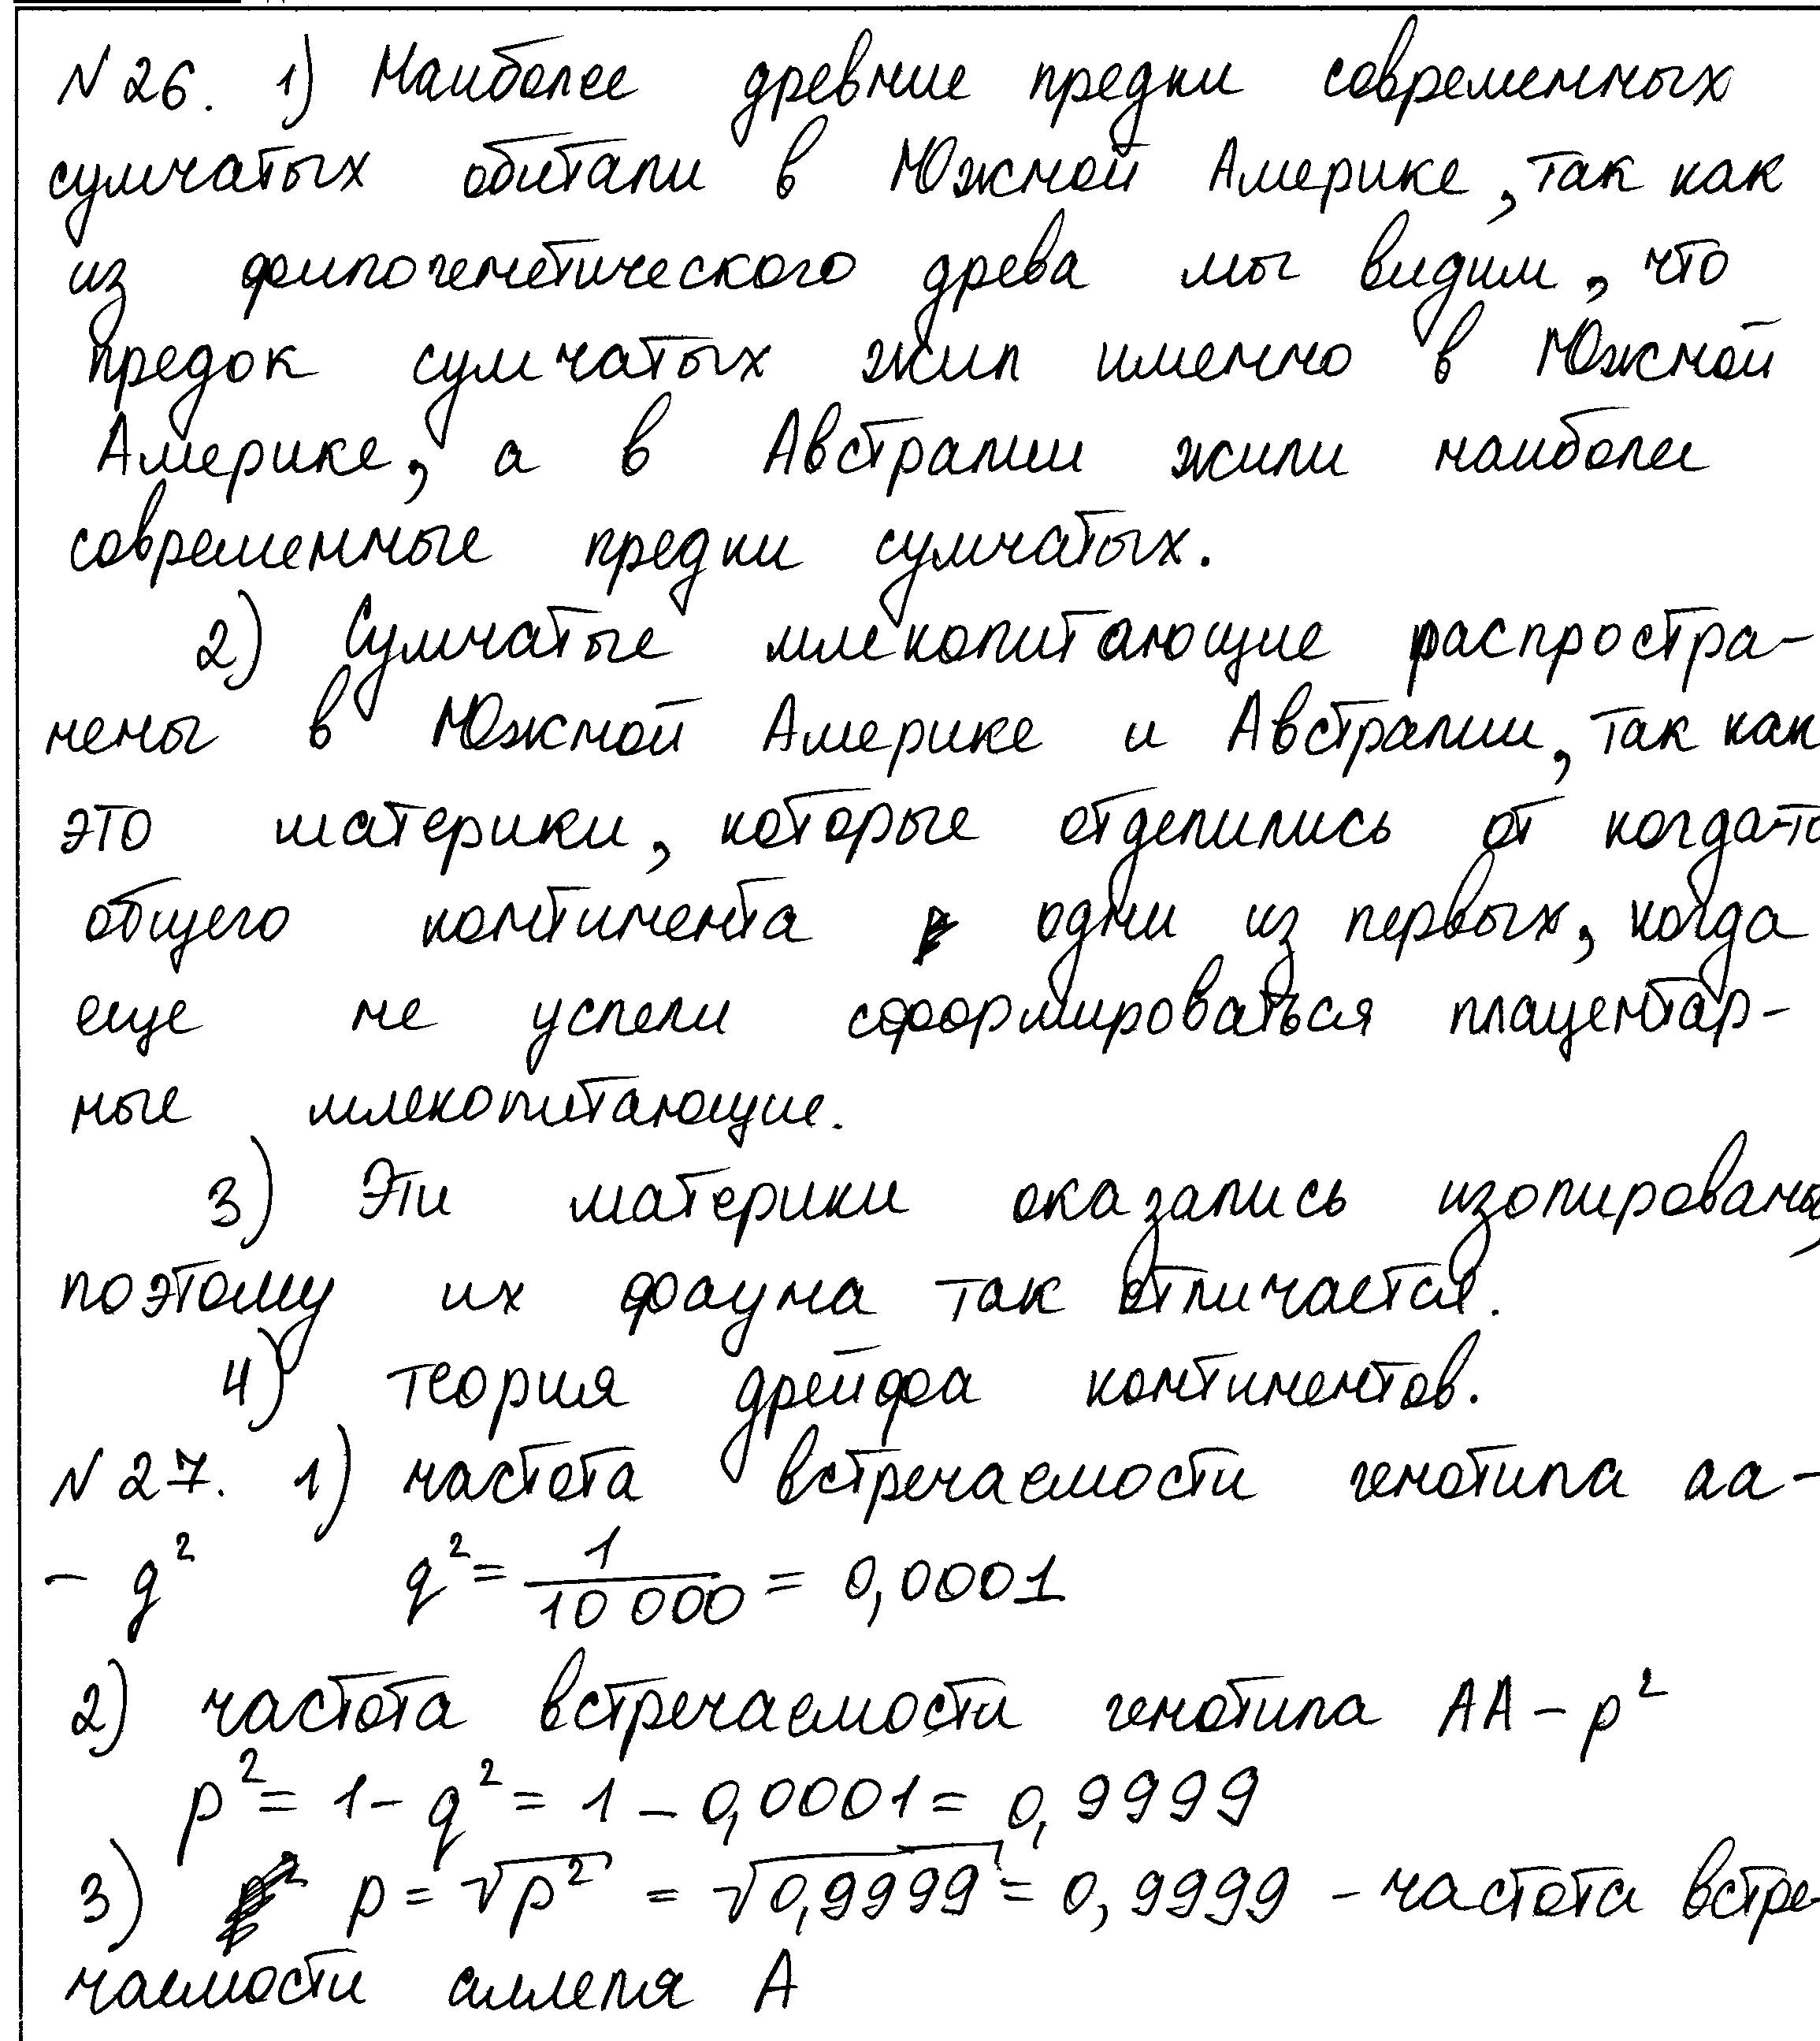 № 26. 1) Наиболее древние предки современных
сумчатых обитали в Южной Америке, так как
из филогенетического древа мы видим, что
предок сумчатых жил именно в Южной
Америке, а в Австралии жили наиболее
современные предки сумчатых.
2) Сумчатые млекопитающие распростра-
нены в Южной Америке и Австралии, так как
это материки, которые отделились от когда-то
общего континента одни из первых, когда
еще не успели сформироваться плацентар-
ные млекопитающие.
3) Эти материки оказались изолированы,
поэтому их фауна так отличается.
4) теория дрейфа континентов.
№ 27. 1) частота встречаемости генотипа aa -
- q² q² = 1/10 000 = 0,0001
2) частота встречаемости генотипа AA - p²
p² = 1 - q² = 1 - 0,0001 = 0,9999
3) p = √p² = √0,9999 = 0,9999 - частота встре-
чаемости аллеля A